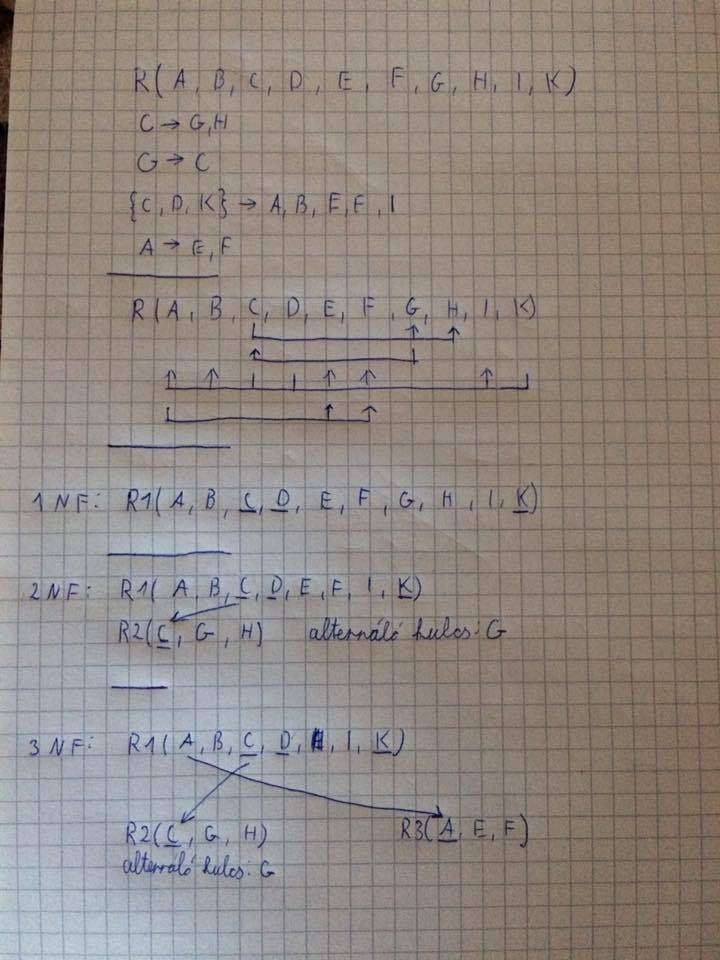 R(A, B, C, D, E, F, G, H, I, K)
C → G,H
G → C
{C, D, K} → A, B, E, F, I
A → E, F
R(A, B, C, D, E, F, G, H, I, K)
1NF: R1(A, B, C, D, E, F, G, H, I, K)
2NF: R1(A, B, C, D, E, F, I, K)
R2(C, G, H) alternáló kulcs: G
3NF: R1(A, B, C, D, I, K)
R2(C, G, H) R3(A, E, F)
alternáló kulcs: G